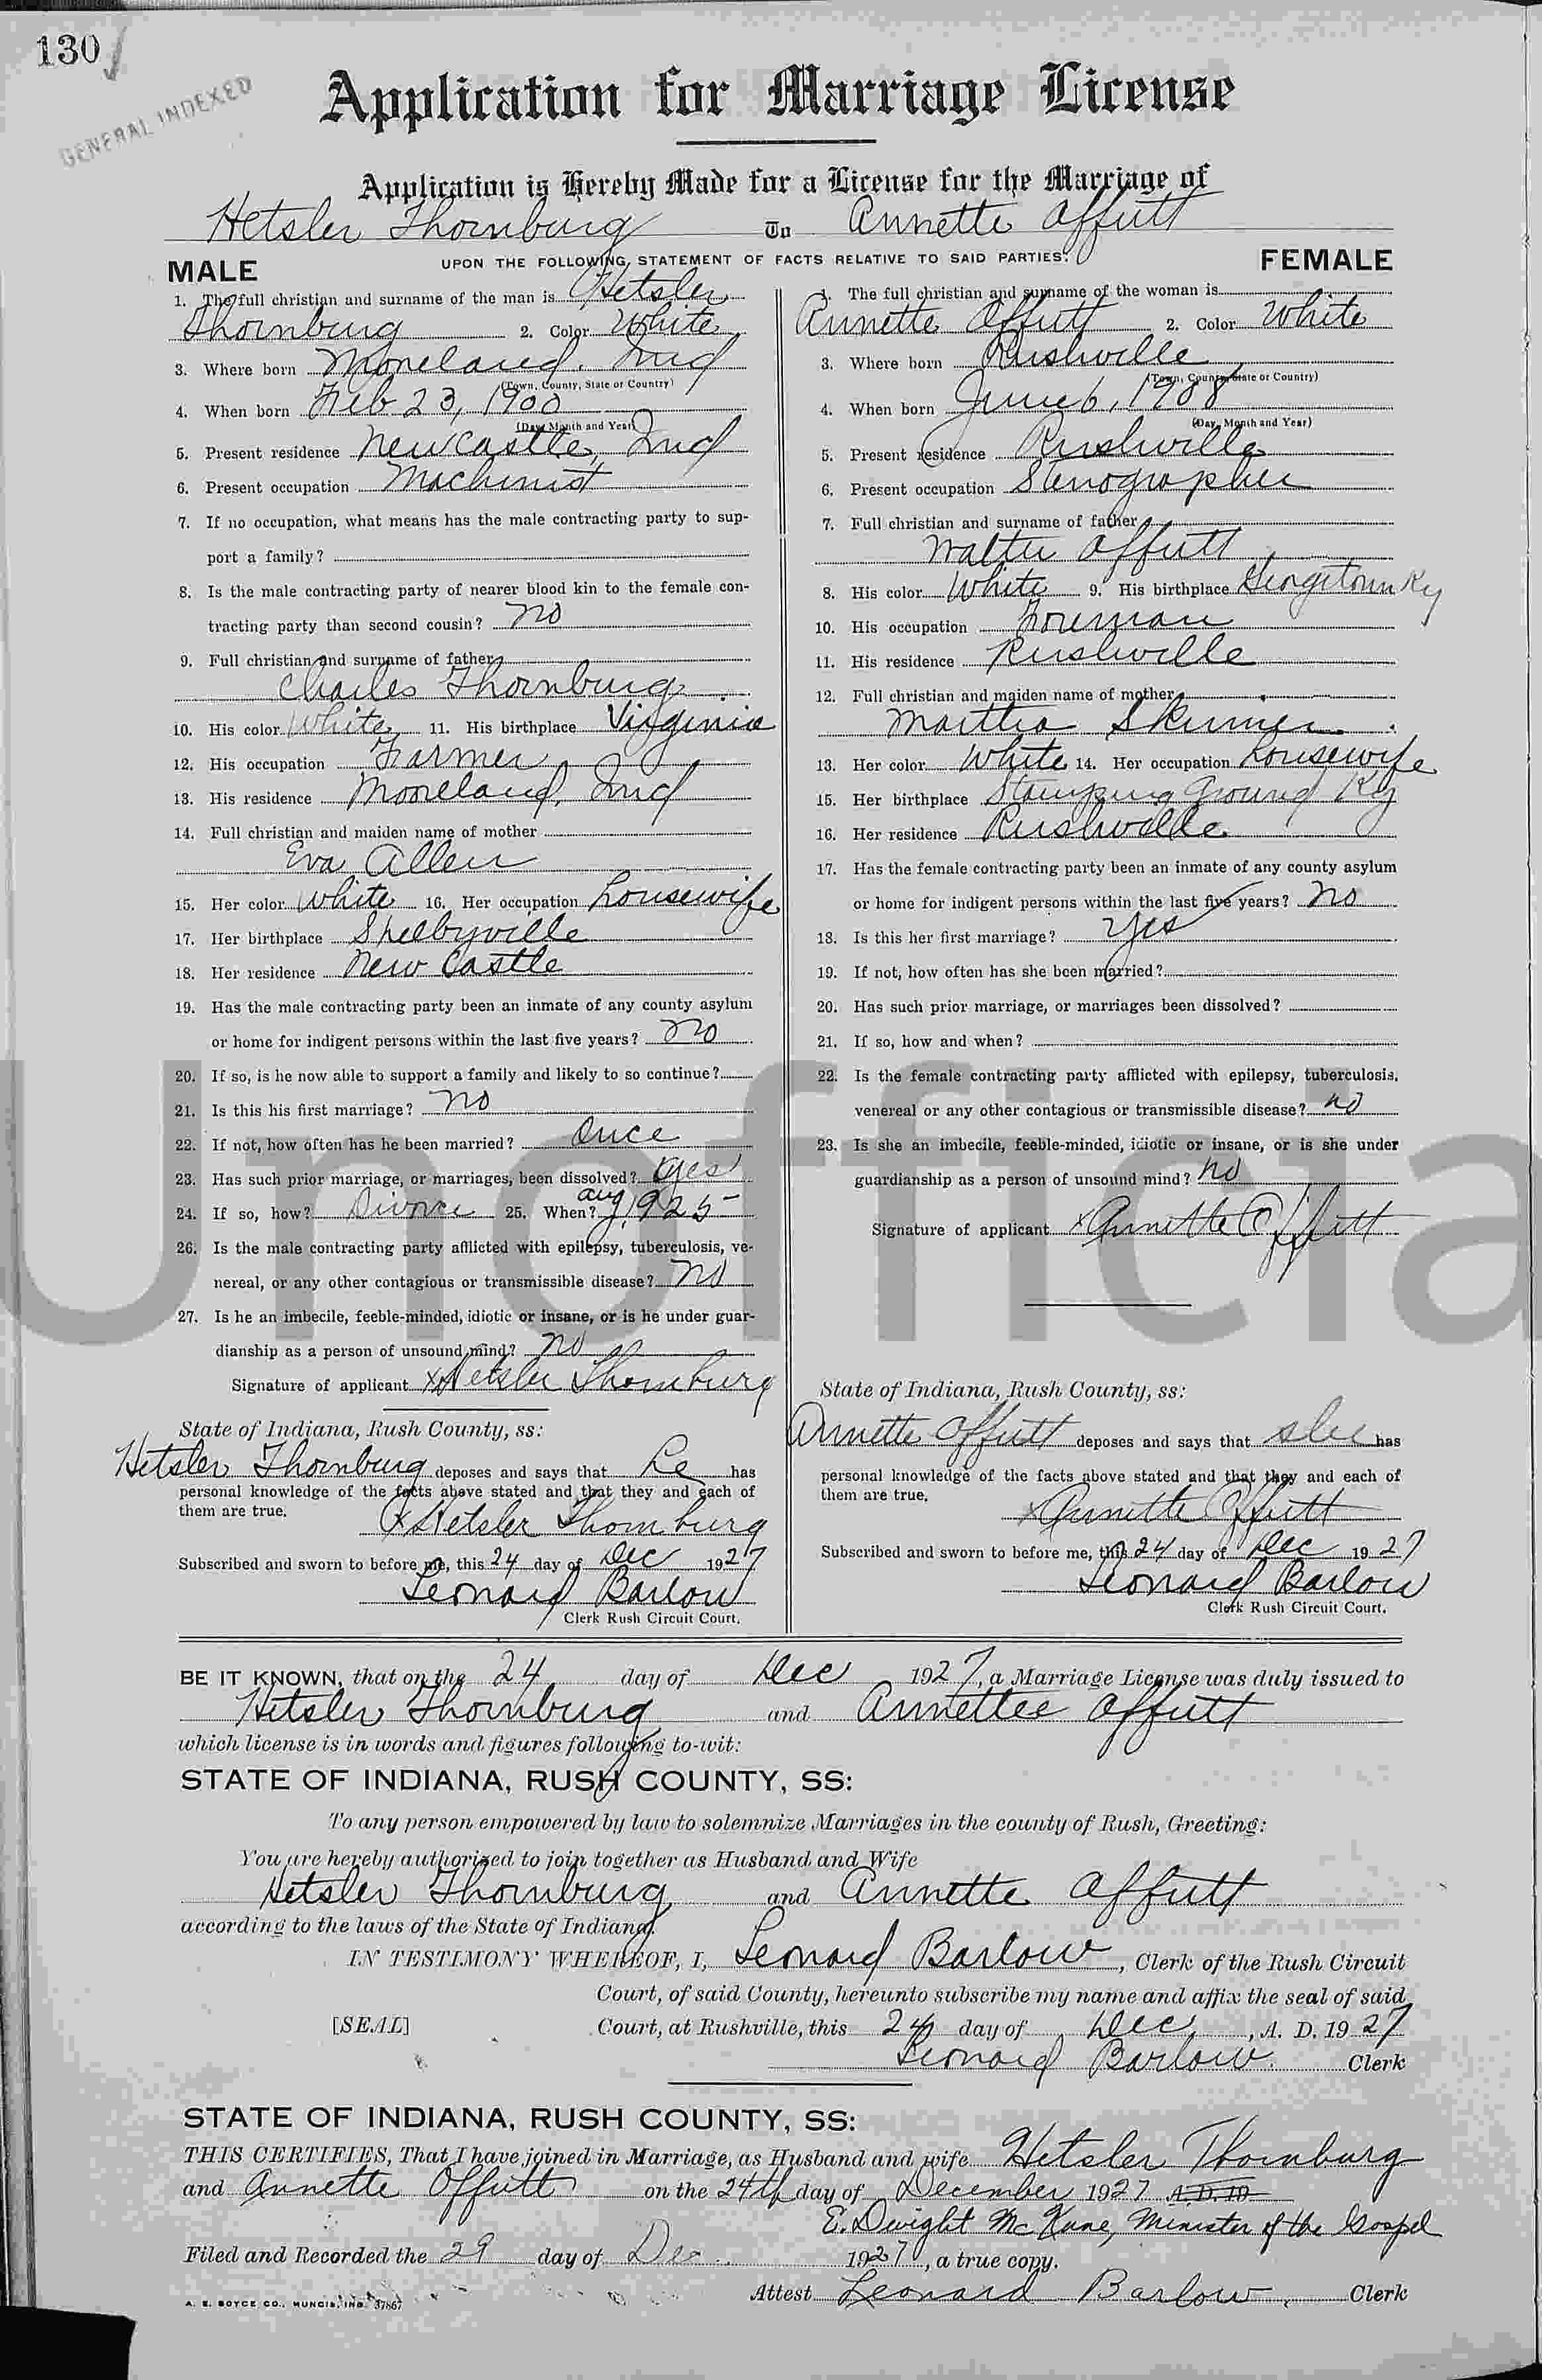 130
GENERAL INDEXED
Application for Marriage License
Application is Hereby Made for a License for the Marriage of
Hetsler Thornburg To Annette Offutt
UPON THE FOLLOWING STATEMENT OF FACTS RELATIVE TO SAID PARTIES:
MALE
1. The full christian and surname of the man is Hetsler
Thornburg 2. Color White
3. Where born Moreland, Ind
(Town, County, State or Country)
4. When born Feb 23, 1900
(Day, Month and Year)
5. Present residence Newcastle, Ind
6. Present occupation Machinist
7. If no occupation, what means has the male contracting party to sup-
port a family?
8. Is the male contracting party of nearer blood kin to the female con-
tracting party than second cousin? no
9. Full christian and surname of father
Charles Thornburg
10. His color White 11. His birthplace Virginia
12. His occupation Farmer
13. His residence Mooreland, Ind
14. Full christian and maiden name of mother
Eva Allen
15. Her color White 16. Her occupation housewife
17. Her birthplace Shelbyville
18. Her residence New Castle
19. Has the male contracting party been an inmate of any county asylum
or home for indigent persons within the last five years? no
20. If so, is he now able to support a family and likely to so continue?
21. Is this his first marriage? no
22. If not, how often has he been married? Once
23. Has such prior marriage, or marriages, been dissolved? Yes
24. If so, how? Divorce 25. When? Aug, 1925
26. Is the male contracting party afflicted with epilepsy, tuberculosis, ve-
nereal, or any other contagious or transmissible disease? no
27. Is he an imbecile, feeble-minded, idiotic or insane, or is he under guar-
dianship as a person of unsound mind? no
Signature of applicant x Hetsler Thornburg
State of Indiana, Rush County, ss:
Hetsler Thornburg deposes and says that he has
personal knowledge of the facts above stated and that they and each of
them are true.
x Hetsler Thornburg
Subscribed and sworn to before me, this 24 day of Dec 1927
Leonard Barlow
Clerk Rush Circuit Court.
FEMALE
1. The full christian and surname of the woman is
Annette Offutt 2. Color White
3. Where born Rushville
(Town, County, State or Country)
4. When born June 6, 1908
(Day, Month and Year)
5. Present residence Rushville
6. Present occupation Stenographer
7. Full christian and surname of father
Walter Offutt
8. His color White 9. His birthplace Georgetown Ky
10. His occupation Foreman
11. His residence Rushville
12. Full christian and maiden name of mother
Martha Skinner
13. Her color White 14. Her occupation housewife
15. Her birthplace Stamping Ground Ky
16. Her residence Rushville
17. Has the female contracting party been an inmate of any county asylum
or home for indigent persons within the last five years? no
18. Is this her first marriage? Yes
19. If not, how often has she been married?
20. Has such prior marriage, or marriages been dissolved?
21. If so, how and when?
22. Is the female contracting party afflicted with epilepsy, tuberculosis,
venereal or any other contagious or transmissible disease? no
23. Is she an imbecile, feeble-minded, idiotic or insane, or is she under
guardianship as a person of unsound mind? no
Signature of applicant x Annette Offutt
State of Indiana, Rush County, ss:
Annette Offutt deposes and says that she has
personal knowledge of the facts above stated and that they and each of
them are true.
x Annette Offutt
Subscribed and sworn to before me, this 24 day of Dec 1927
Leonard Barlow
Clerk Rush Circuit Court.
BE IT KNOWN, that on the 24 day of Dec 1927, a Marriage License was duly issued to
Hetsler Thornburg and Annettee Offutt
which license is in words and figures following to-wit:
STATE OF INDIANA, RUSH COUNTY, SS:
To any person empowered by law to solemnize Marriages in the county of Rush, Greeting:
You are hereby authorized to join together as Husband and Wife
Hetsler Thornburg and Annette Offutt
according to the laws of the State of Indiana.
IN TESTIMONY WHEREOF, I, Leonard Barlow, Clerk of the Rush Circuit
Court, of said County, hereunto subscribe my name and affix the seal of said
[SEAL] Court, at Rushville, this 24 day of Dec, A. D. 1927
Leonard Barlow Clerk
STATE OF INDIANA, RUSH COUNTY, SS:
THIS CERTIFIES, That I have joined in Marriage, as Husband and wife Hetsler Thornburg
and Annette Offutt on the 24th day of December 1927 A. D. 19
E. Dwight McKune, Minister of the Gospel
Filed and Recorded the 29 day of Dec. 1927, a true copy.
Attest Leonard Barlow, Clerk
A. E. BOYCE CO., MUNCIE, IND. 37867
Unofficia